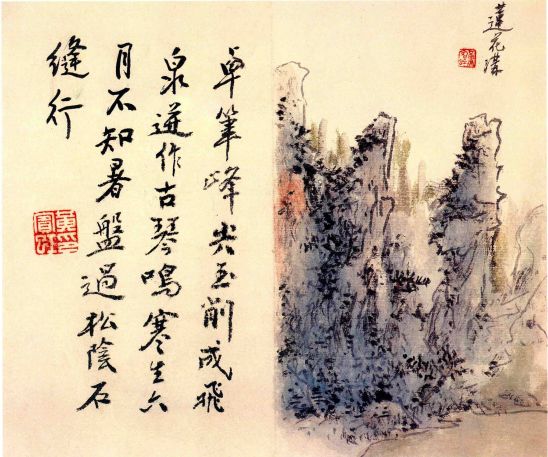 蓮花溝
卓筆峰尖玉削成飛
泉迸作古琴鳴寒生六
月不知暑盤過松陰石
縫行